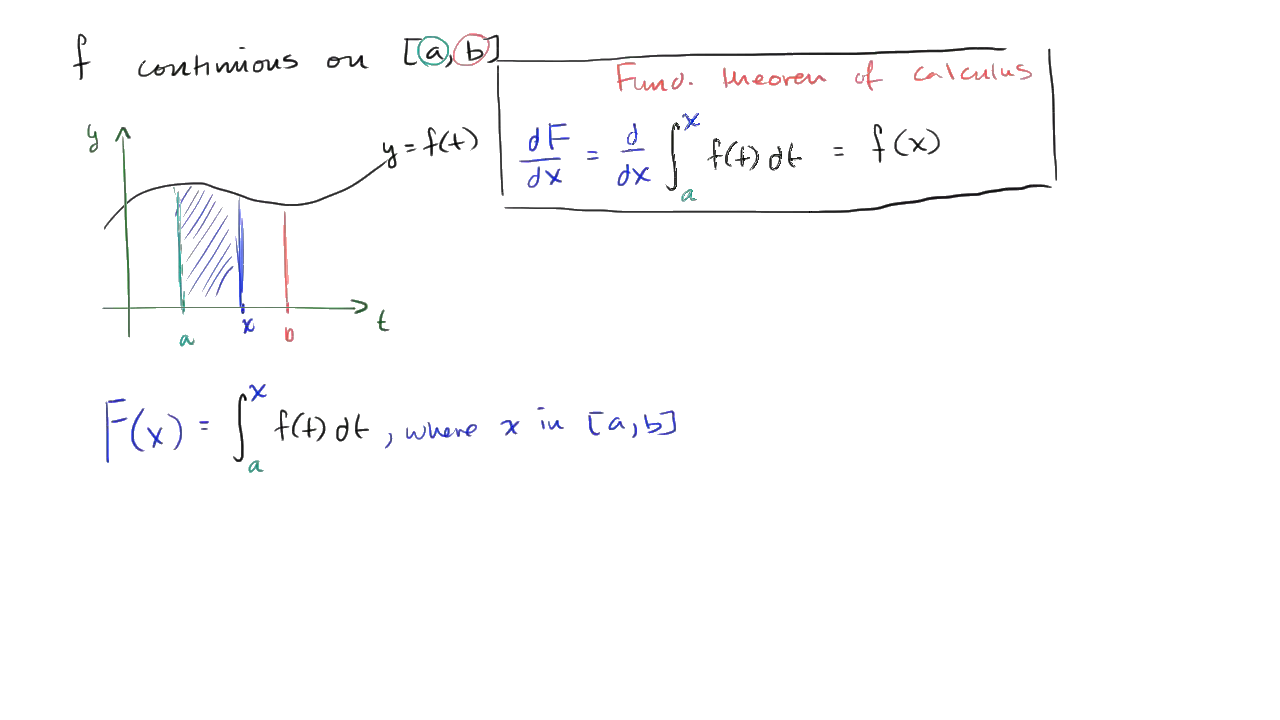 f continuous on [a, b]
Fund. theorem of calculus
dF/dx = d/dx ∫_a^x f(t) dt = f(x)
y
y = f(t)
a x b
t
F(x) = ∫_a^x f(t) dt, where x in [a, b]